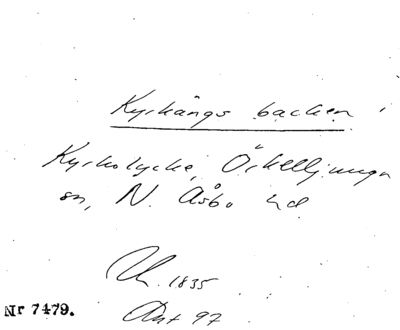 Kyrkängs backen
Kyrkolycke, Örkelljunga
sn, N. Åsbo hd
Uh. 1835
Ant 97
Nr 7479.